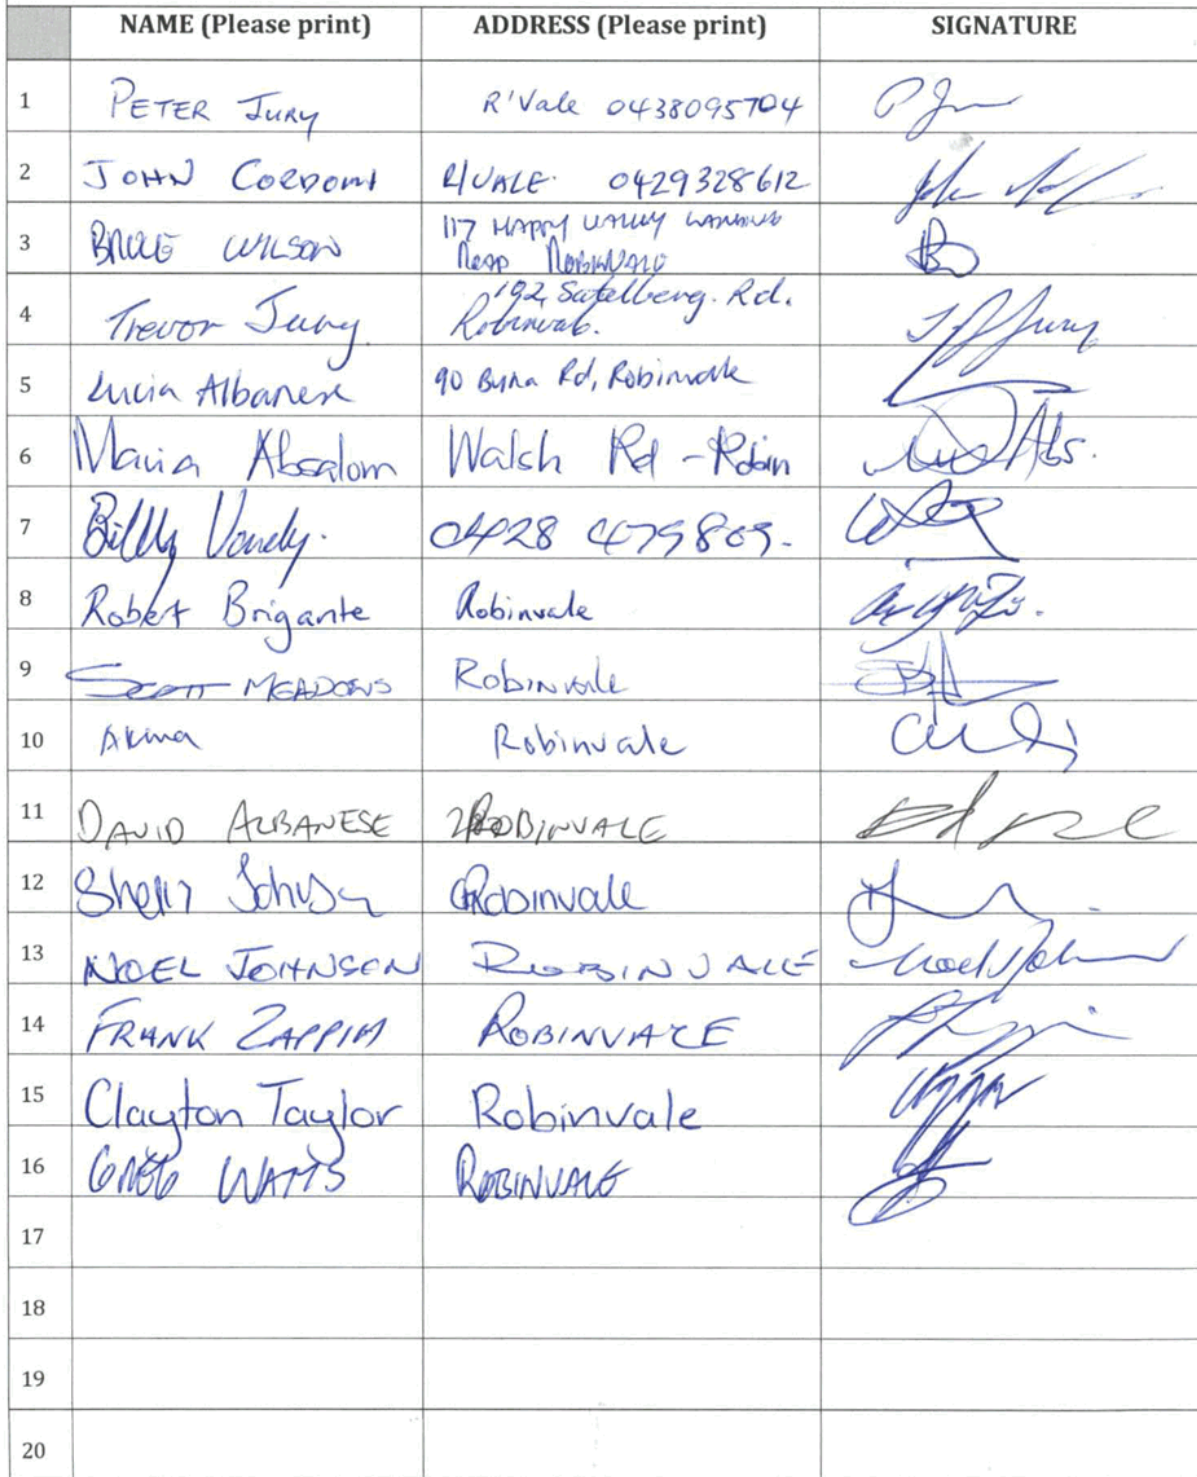 NAME (Please print) ADDRESS (Please print) SIGNATURE
1 PETER JURY R'Vale 0438095704 P Jury
2 JOHN CORDOMI R/VALE. 0429328612 John
3 BRUCE WILSON 117 HAPPY VALLEY LANDING
ROAD ROBINVALE
4 Trevor Jury. 192, Satelberg. Rd.
Robinvale. T Jury
5 Lucia Albanese 90 Byna Rd, Robinvale
6 Maria Absalom Walsh Rd - Robin Abs.
7 Billy Vandy. 0428 475869.
8 Robert Brigante Robinvale
9 SCOTT MEADOWS Robinvale
10 Akma Robinvale
11 DAVID ALBANESE ROBINVALE
12 Robinvale
13 NOEL JOHNSON ROBINVALE Noel Johnson
14 FRANK ZAPPIA ROBINVALE
15 Clayton Taylor Robinvale
16 GREG WATTS ROBINVALE
17
18
19
20